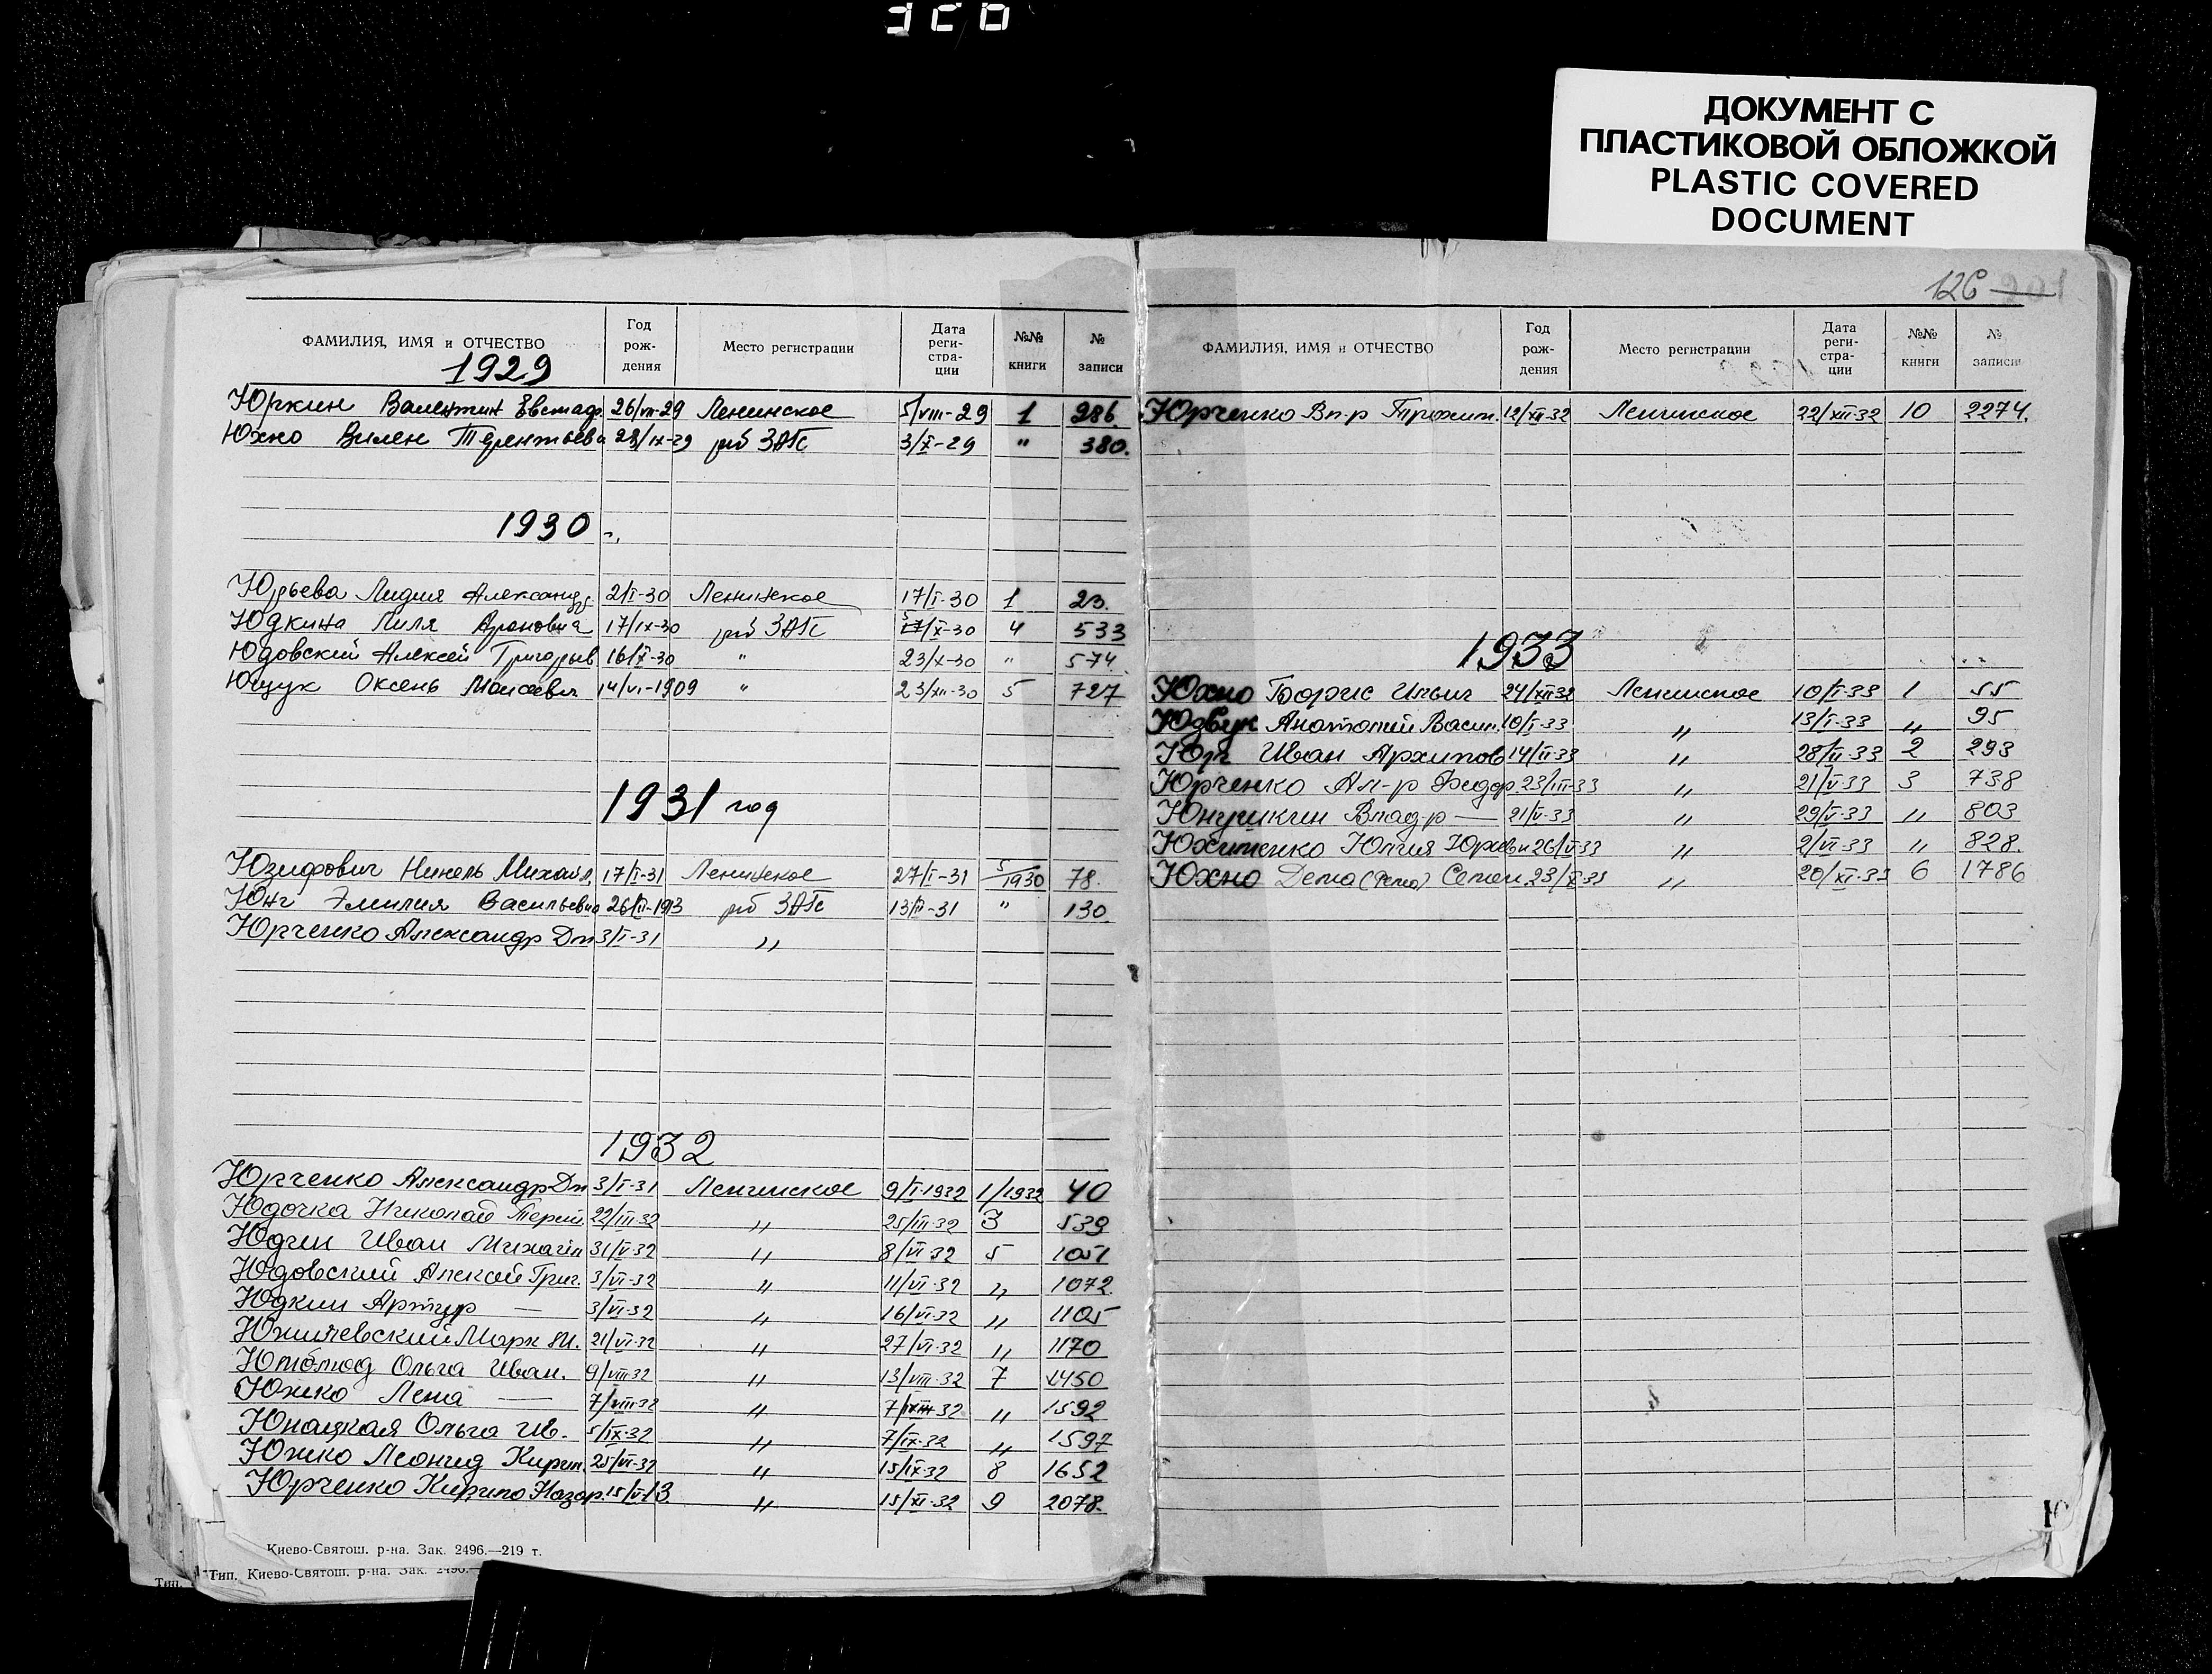 ДОКУМЕНТ С
ПЛАСТИКОВОЙ ОБЛОЖКОЙ
PLASTIC COVERED
DOCUMENT
126 201
ФАМИЛИЯ, ИМЯ и ОТЧЕСТВО Год рождения Место регистрации Дата регистрации №№ книги № записи
1929
Юркин Валентин Евстаф. 26/VII-29 Ленинское 5/VIII-29 1 286
Юхно Вилен Терентьев 28/IX-29 риб ЗАГС 3/X-29 " 380.
1930
Юрьева Лидия Александр. 2/I-30 Ленинское 17/I-30 1 23.
Юдкина Лиля Ароновна 17/IX-30 риб ЗАГС /X-30 4 533
Юдовский Алексей Григорьев 16/X-30 " 23/X-30 " 574
Ющук Оксень Моисеевич 14/VI-1909 " 23/XII-30 5 727
1931 год
Юзифович Нинель Михайл. 17/I-31 Ленинское 27/I-31 5/1930 78.
Юнг Эмилия Васильевна 26/-1913 риб ЗАГС 13/II-31 " 130.
Юрченко Александр Дм 3/I-31 "
1932
Юрченко Александр Дм 3/I-31 Ленинское 9/I-1932 1/1932 40
Юдочка Николай 22/III-32 " 25/III-32 3 539
Юдин Иван Михайл 31/V-32 " 8/VI-32 5 1051
Юдовский Алексей Григ. 3/VI-32 " 11/VI-32 " 1072.
Юдкин Артур — 3/VI-32 " 16/VI-32 " 1105
Марк М. 21/VI-32 " 27/VI-32 " 1170
Ольга Иван. 9/VIII-32 " 13/VIII-32 7 1450
Южко Лена — 7/VIII-32 " 7/IX-32 " 1592
Юнацкая Ольга Ив. 5/IX-32 " 7/IX-32 " 1597
Южко Леонид Кирил. 25/VI-32 " 15/IX-32 8 1652
Юрченко Кирило Назар. 15/V-13 " 15/XI-32 9 2078.
Киево-Святош. р-на. Зак. 2496.—219 т.
Тип. Киево-Святош. р-на. Зак. 2496.—
ФАМИЛИЯ, ИМЯ и ОТЧЕСТВО Год рождения Место регистрации Дата регистрации №№ книги № записи
Юрченко Вл-р Трохим. 12/XII-32 Ленинское 22/XII-32 10 2274.
1933
Юхно Борис Ильич 24/XII-32 Ленинское 10/I-33 1 55
Анатолий Васил. 10/I-33 " 13/I-33 " 95
Иван Архипов 14/II-33 " 28/II-33 2 293
Юрченко Ал-р Федор. 23/III-33 " 21/V-33 3 738
Юнушкин Влад-р — 21/V-33 " 29/V-33 " 803
Юхименко Юлия Юрьевн 26/V-33 " 2/VI-33 " 828.
Юхно Семен 23/X-33 " 20/XI-33 6 1786